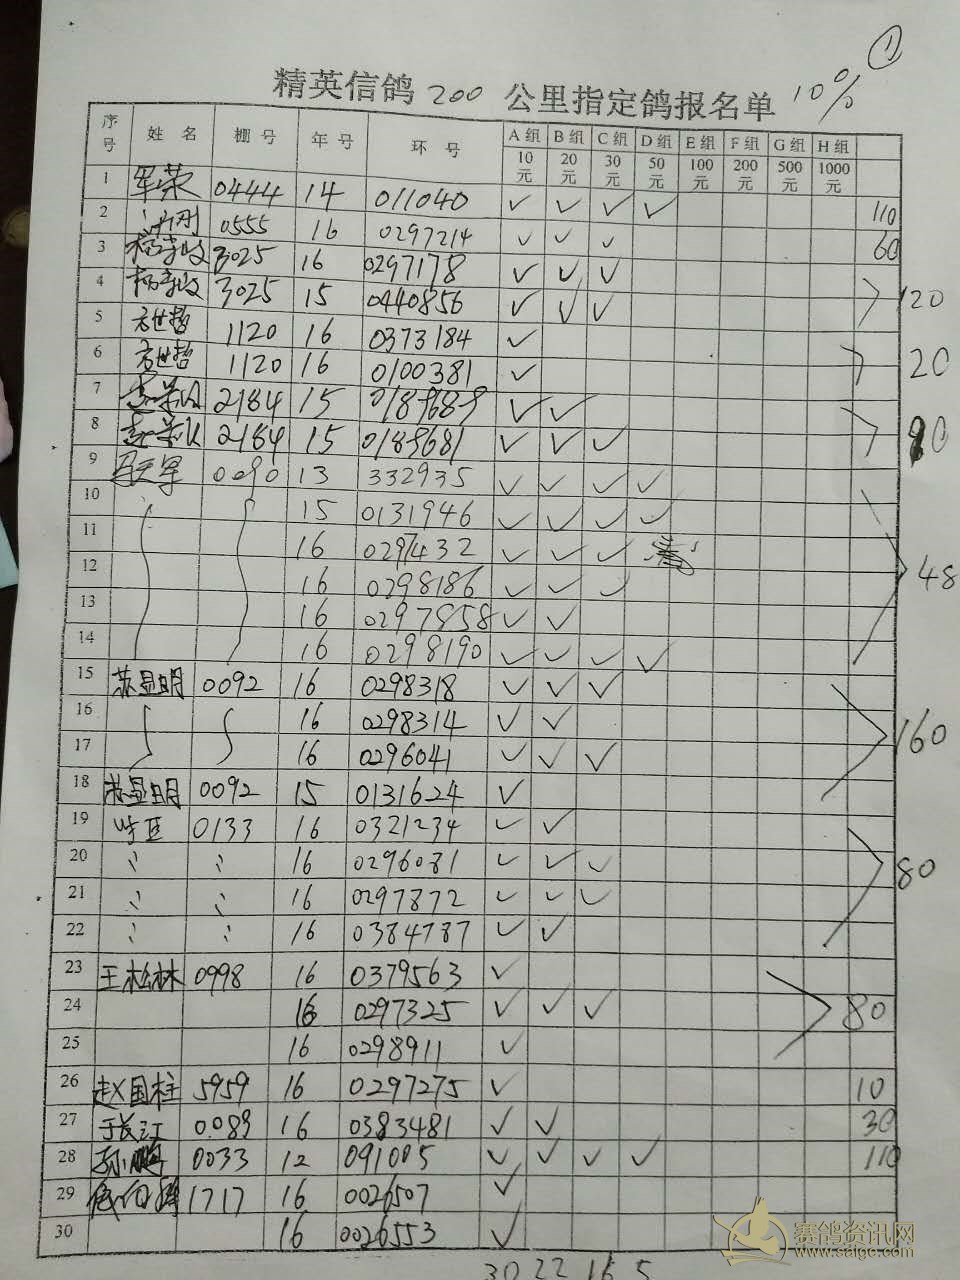 ①
10%
精英信鸽 200 公里指定鸽报名单
序号 姓名 棚号 年号 环号 A组 B组 C组 D组 E组 F组 G组 H组
10元 20元 30元 50元 100元 200元 500元 1000元
1 军荣 0444 14 011040 ✓ ✓ ✓ ✓ 110
2 0555 16 0297214 ✓ ✓ ✓ 60
3 3025 16 0297178 ✓ ✓ ✓
4 3025 15 0440856 ✓ ✓ ✓ 120
5 方世哲 1120 16 0373184 ✓
6 方世哲 1120 16 0100381 ✓ 20
7 2184 15 0189689 ✓ ✓
8 2184 15 0189681 ✓ ✓ ✓ 90
9 0090 13 332935 ✓ ✓ ✓ ✓
10 15 0131946 ✓ ✓ ✓ ✓
11 16 0297432 ✓ ✓ ✓
12 16 0298186 ✓ ✓ ✓ 48
13 16 0297858 ✓ ✓
14 16 0298190 ✓ ✓ ✓ ✓
15 苏显明 0092 16 0298318 ✓ ✓ ✓
16 16 0298314 ✓ ✓
17 16 0296041 ✓ ✓ ✓ 160
18 苏显明 0092 15 0131624 ✓
19 0133 16 0321234 ✓ ✓
20 〃 〃 16 0296081 ✓ ✓ ✓ 80
21 〃 〃 16 0297872 ✓ ✓ ✓
22 〃 〃 16 0384787 ✓ ✓
23 王松林 0998 16 0379563 ✓
24 16 0297325 ✓ ✓ ✓ 80
25 16 0298911 ✓
26 赵国柱 5959 16 0297275 ✓ 10
27 于长江 0089 16 0383481 ✓ ✓ 30
28 孙鹏 0033 12 091005 ✓ ✓ ✓ ✓ 110
29 1717 16 0026507 ✓
30 16 0026553 ✓
30 22 16 5
赛鸽资讯网
www.saige.com